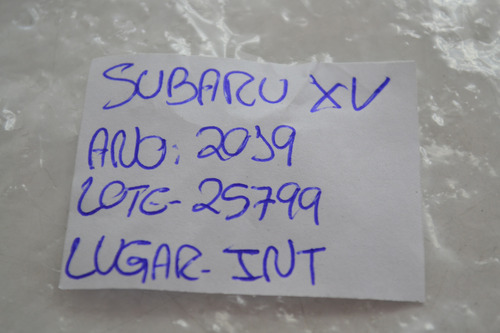 SUBARU XV
ANO: 2019
LOTE- 25799
LUGAR- INT